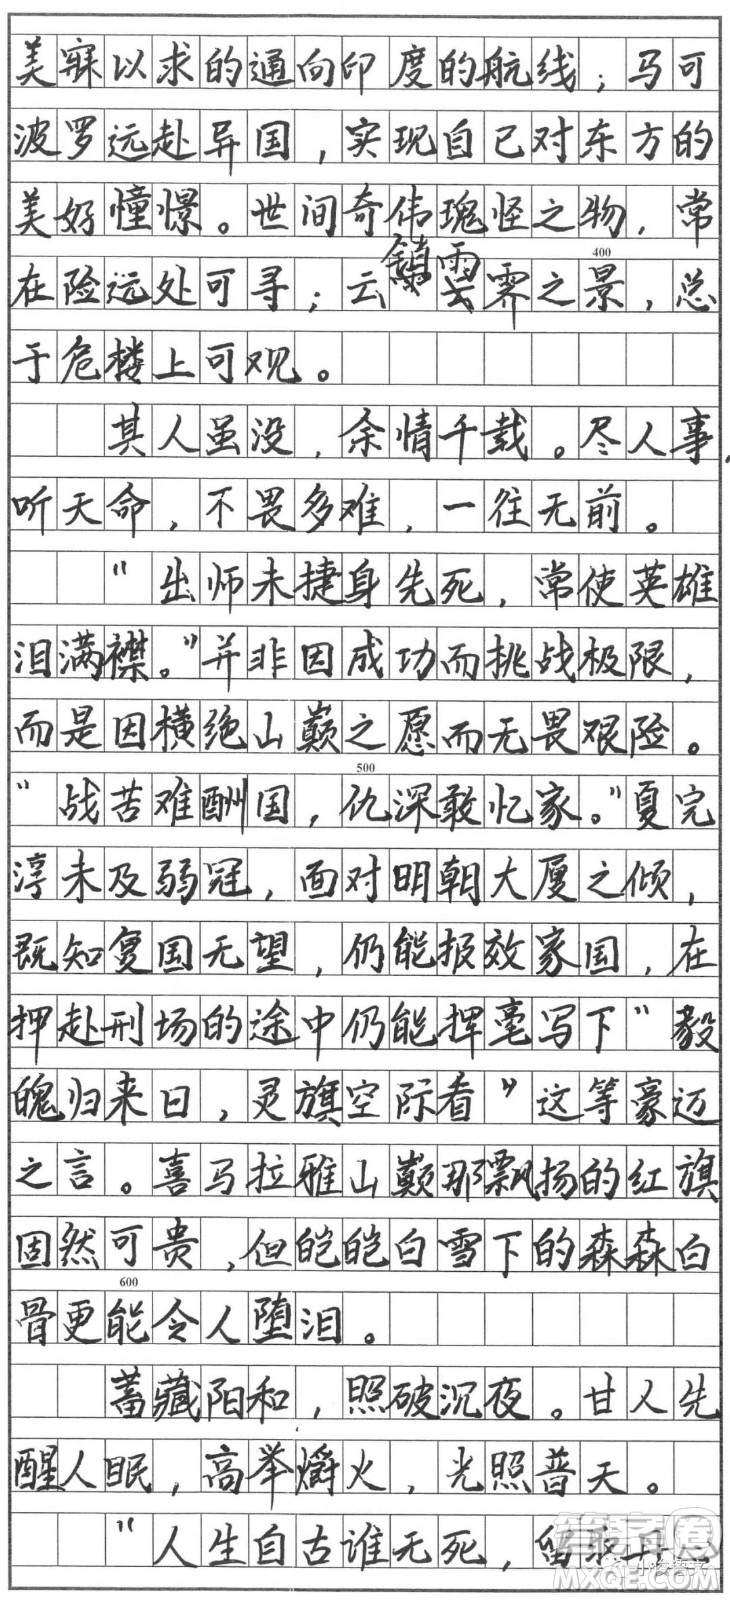 美寐以求的通向印度的航线；马可
波罗远赴异国，实现自己对东方的
美好憧憬。世间奇伟瑰怪之物，常
鎖雲
400
在险远处可寻；云雾之景，总
于危楼上可观。
其人虽没，余情千载。尽人事，
听天命，不畏多难，一往无前。
“出师未捷身先死，常使英雄
泪满襟。”并非因成功而挑战极限，
而是因横绝山巅之愿而无畏艰险。
500
“战苦难酬国，仇深敢忆家。”夏完
淳未及弱冠，面对明朝大厦之倾，
既知复国无望，仍能报效家国，在
押赴刑场的途中仍能挥毫写下“毅
魄归来日，灵旗空际看”这等豪迈
之言。喜马拉雅山巅那飘扬的红旗
固然可贵，但皑皑白雪下的森森白
600
骨更能令人堕泪。
蓄藏阳和，照破沉夜。甘人先
醒人眠，高举爝火，光照普天。
“人生自古谁无死，留取丹心
答案圈
MXQE.COM